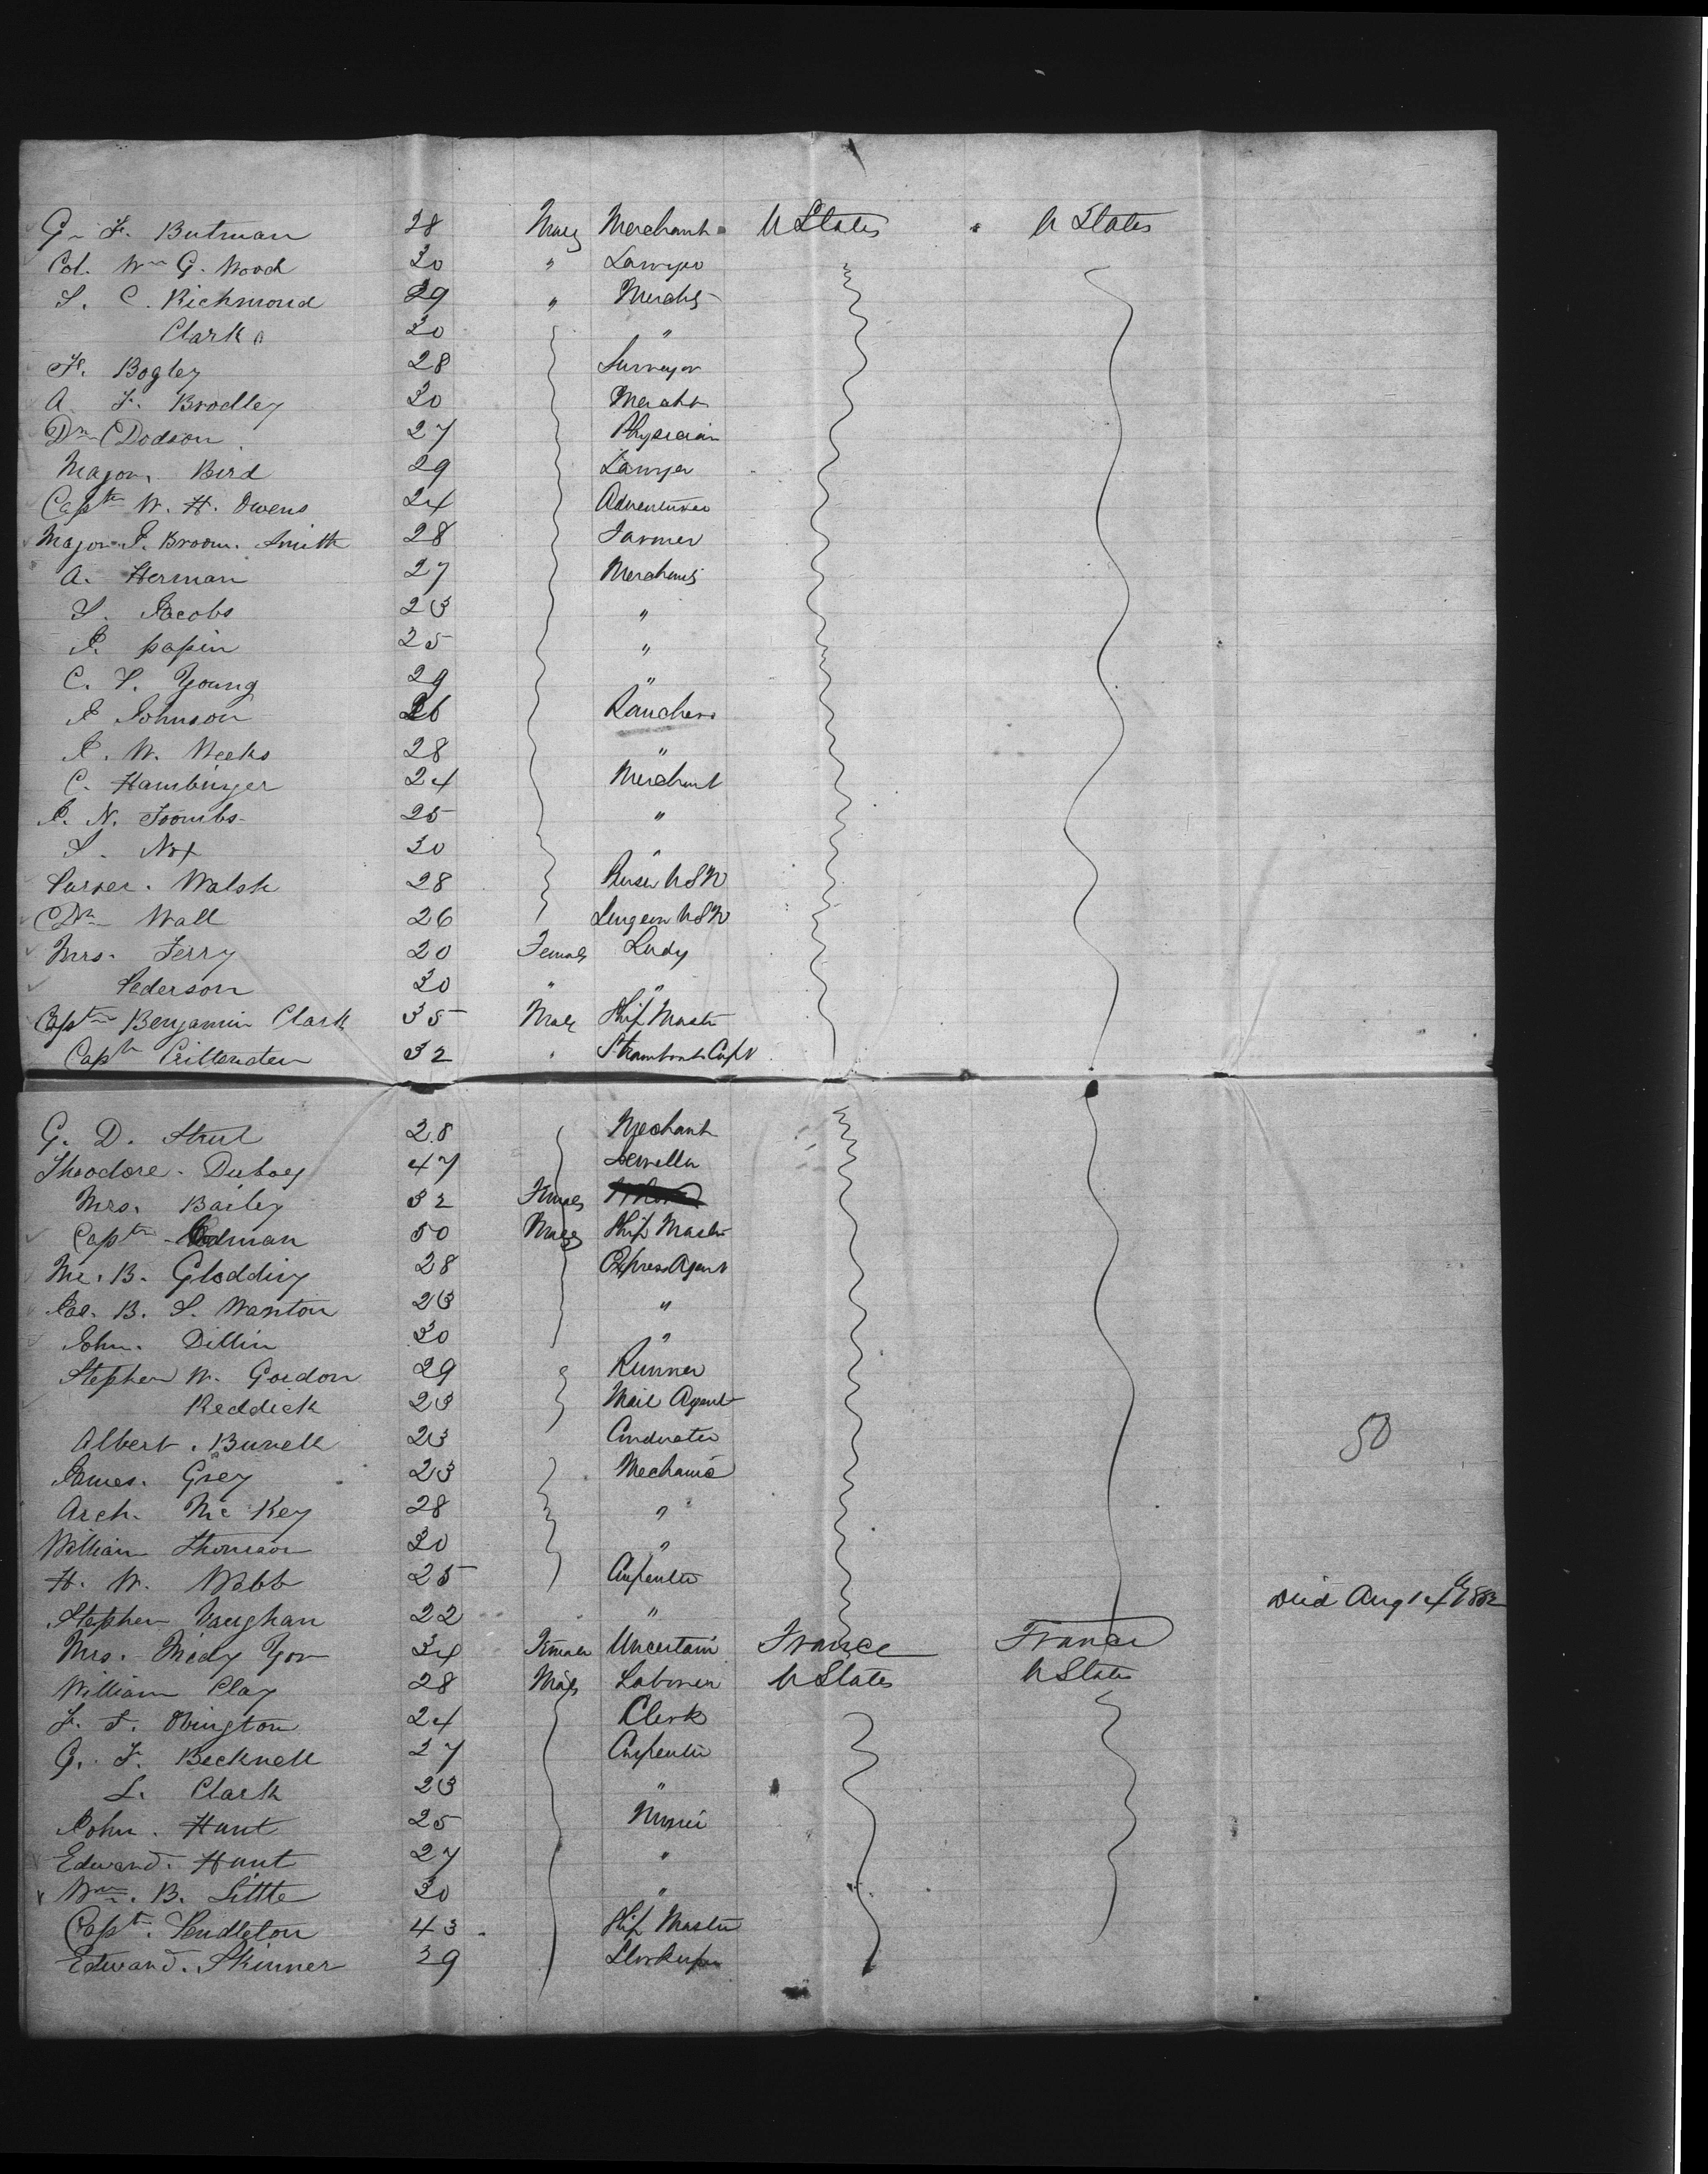 G. F. Butman 28 Male Merchant U States U States
Col. Wm G. Wood 30 " Lawyer
S. C. Richmond 29 " Mercht
Clark 30 "
F. Bogley 28 Surveyor
A. F. Bradley 30 Mercht
Dr Dodson 27 Physician
Major. Bird 29 Lawyer
Captn W. H. Owens 24 Adventurer
Major J. Broom. Smith 28 Farmer
A. Herman 27 Merchant
S. Jacobs 23 "
J. papin 25 "
C. S. Young 29 "
J Johnson 26 Ranchero
J. W. Weeks 28 "
C. Hamburger 24 Merchant
J. N. Toombs 25 "
S. 30 "
Purser. Walsh 28 Purser USN
Dr Wall 26 Surgeon USN
Mrs. Terry 20 Female Lady
Pederson 30 " "
Captn Benjamin Clark 35 Male Ship Master
Captn Crittenden 32 " Steamboat Capt
G. D. 28 Mechant
Theodore 47
Mrs. Bailey 32 Female
Captn 50 Male Ship Master
Mr. B. Gladding 28 Express Agent
B. S. Wanton 23 "
John. Dillin 30 "
Stephen W. Gordon 29 Runner
Reddick 23 Mail Agent
Albert. Burrell 23 Conductor
50
James. Grey 23 Mechanic
Arch. Mc Key 28 "
William Thomson 30 "
H. W. Webb 25 Carpenter
Stephen Vaughan 22 " Died Aug 14
Mrs. 34 Female Uncertain France France
William Clay 28 Male Laborer U States U States
F. F. Ovington 24 Clerk
G. F. Becknell 27 Carpenter
L. Clark 23 "
John. Hunt 25
Edward. Hunt 27 "
Wm. B. Little 30 "
Capt. Pendleton 43 Ship Master
Edward. Skinner 29